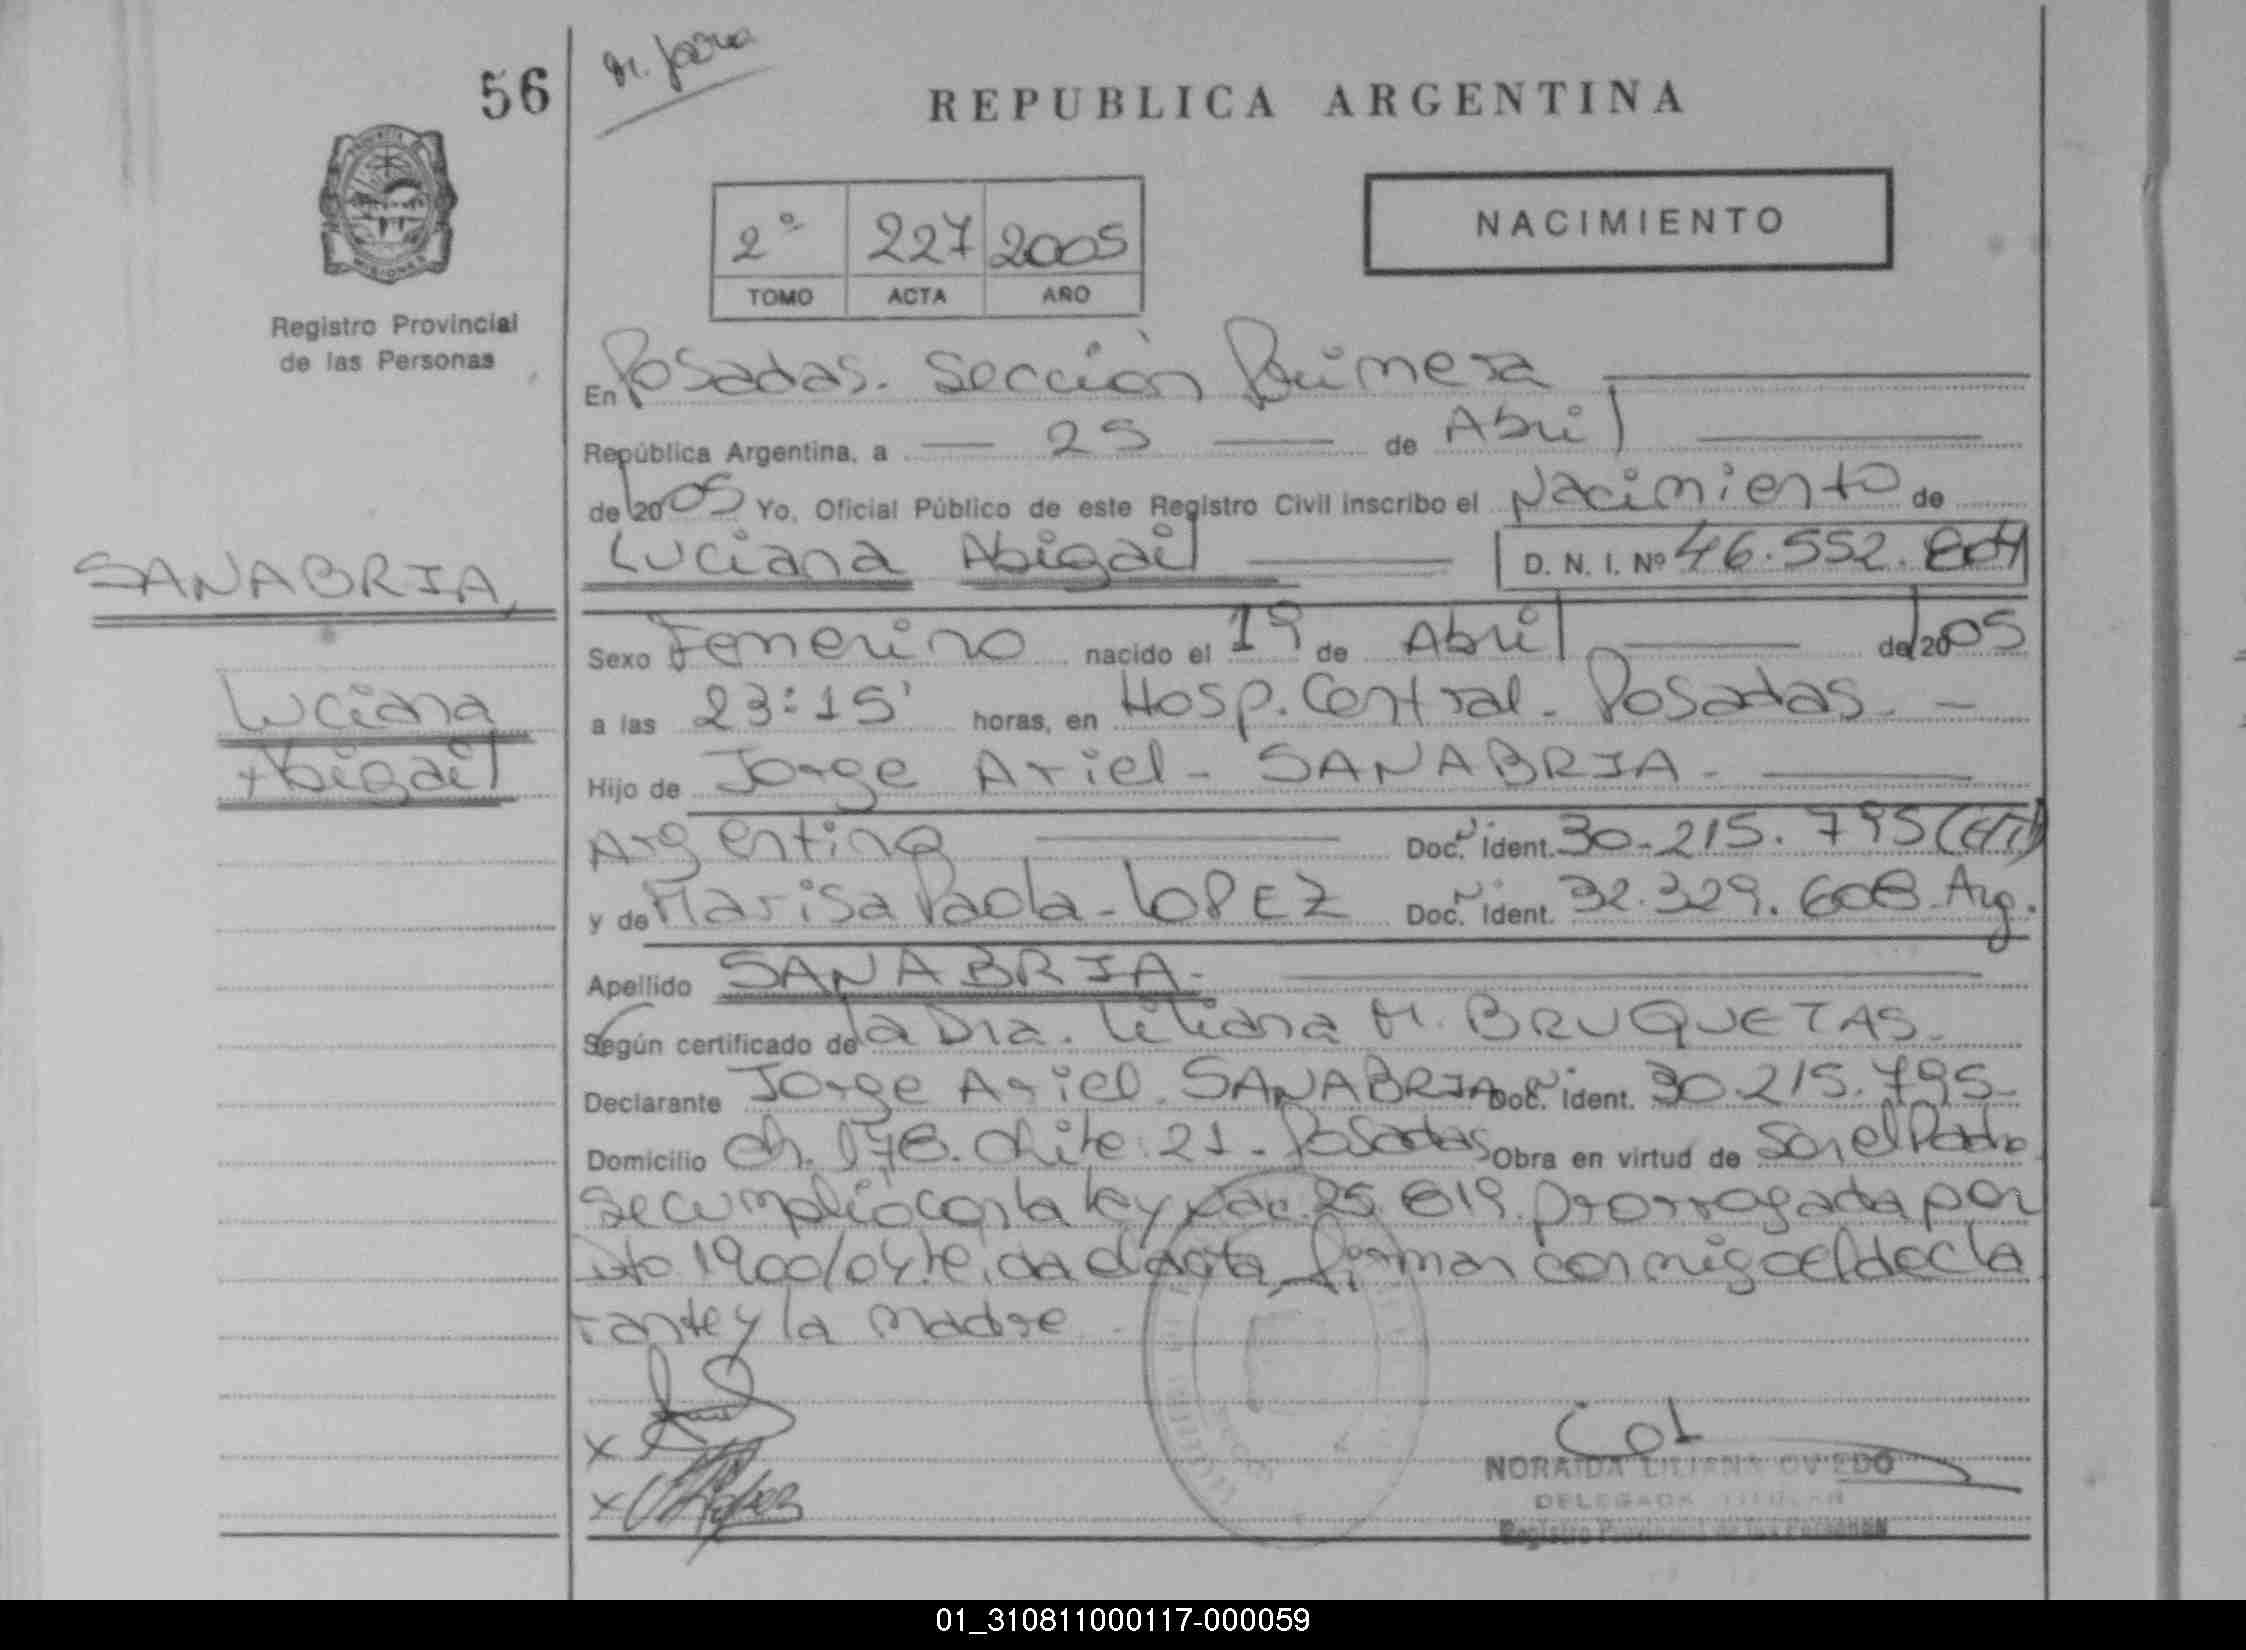 56
REPUBLICA ARGENTINA
2º 227 2005
TOMO ACTA AÑO
NACIMIENTO
MISIONES
Registro Provincial
de las Personas
En Posadas. Sección Primera
República Argentina, a 25 de Abril
de 2005 Yo, Oficial Público de este Registro Civil inscribo el Nacimiento de
Luciana Abigail D. N. I. Nº 46.552.804
SANABRIA,
Luciana
Abigail
Sexo Femenino nacido el 19 de Abril de 2005
a las 23:15' horas, en Hosp. Central - Posadas. -
Hijo de Jorge Ariel - SANABRIA -
Argentina Doc. ident. 30.215.795
y de Marisa Paola - LOPEZ Doc. ident. 32.329.608 - Arg.
Apellido SANABRIA.
Según certificado de la Dra. Liliana M. BRUQUETAS.
Declarante Jorge Ariel. SANABRIA Doc. ident. 30.215.795-
Domicilio Ch. 178. Posadas Obra en virtud de Ser el Padre
se cumplió con la ley 25.819. prorrogada por
Dto 1900/04 leida el acta firman conmigo el decla
rante y la madre
Lopez
NORAIDA LILIANA OVIEDO
DELEGADA TITULAR
Registro Provincial de las Personas
01_310811000117-000059